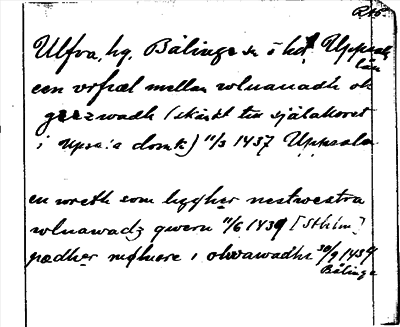 R15
Ulfva, hg, Bälinge sn o hd, Uppsala
län
een vrfiæl mellan wluauadh ok
grezwadh (skänkt till själakoret
i Upsala domk) 11/3 1437 Uppsala
en wreth som liggher nestwestra
wluawadz qwern 11/6 1439 [Sthlm]
rædher mølnere i olwawadhe 30/9 1439
Bälinge